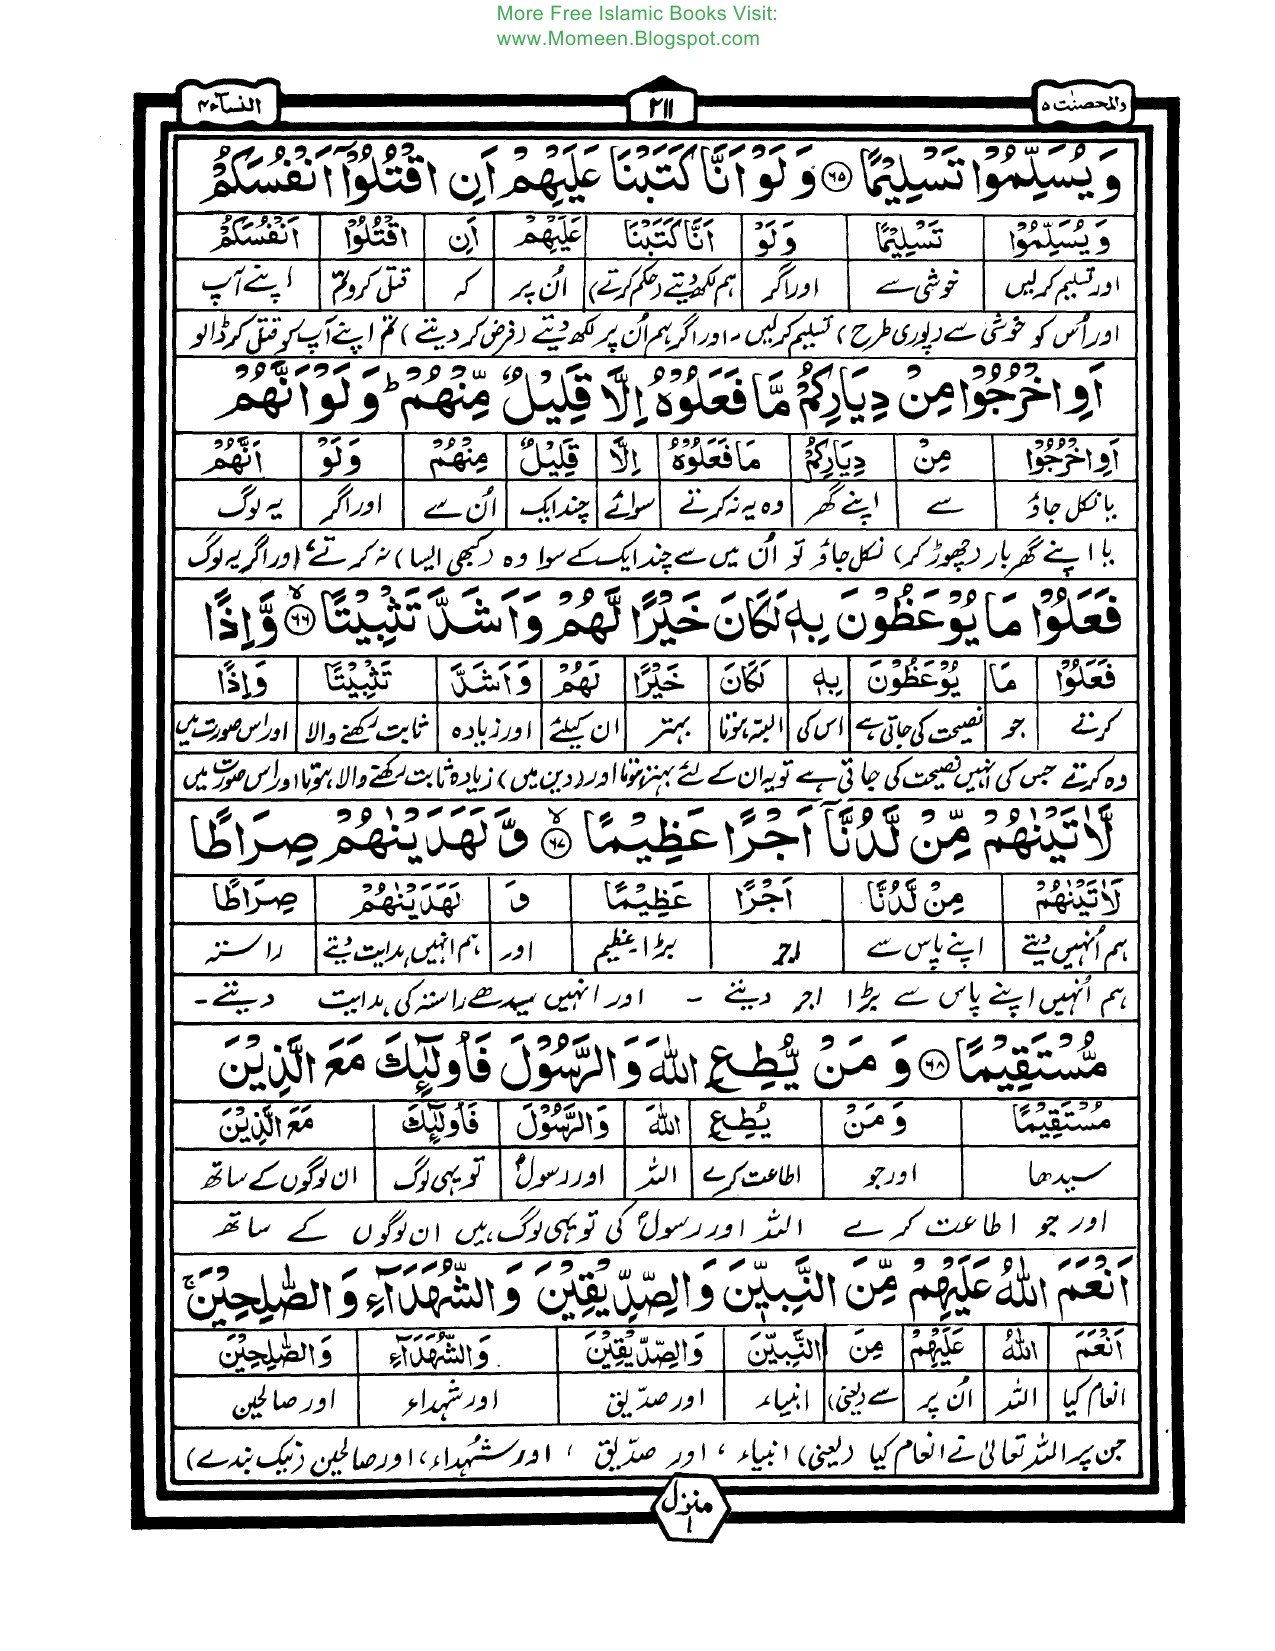 More Free Islamic Books Visit:
www.Momeen.Blogspot.com
والمحصنٰت ۵
۲۱۱
النسآء ۴
وَيُسَلِّمُوْا تَسْلِيْمًا ۶۵ وَلَوْ اَنَّا كَتَبْنَا عَلَيْهِمْ اَنِ اقْتُلُوْٓا اَنْفُسَكُمْ
وَيُسَلِّمُوْا تَسْلِيْمًا وَلَوْ اَنَّا كَتَبْنَا عَلَيْهِمْ اَنِ اقْتُلُوْا اَنْفُسَكُمْ
اور تسلیم کرلیں خوشی سے اور اگر ہم لکھ دیتے (حکم کرتے) اُن پر کہ قتل کرو تم اپنے آپ
اور اُس کو خوشی سے (پوری طرح) تسلیم کرلیں ۔ اور اگر ہم اُن پر لکھ دیتے (فرض کر دیتے) تم اپنے آپ کو قتل کر ڈالو
اَوِ اخْرُجُوْا مِنْ دِيَارِكُمْ مَّا فَعَلُوْهُ اِلَّا قَلِيْلٌ مِّنْهُمْ ؕ وَلَوْ اَنَّهُمْ
اَوِ اخْرُجُوْا مِنْ دِيَارِكُمْ مَا فَعَلُوْهُ اِلَّا قَلِيْلٌ مِنْهُمْ وَلَوْ اَنَّهُمْ
یا نکل جاؤ سے اپنے گھر وہ یہ نہ کرتے سوائے چند ایک اُن سے اور اگر یہ لوگ
یا اپنے گھر بار (چھوڑ کر) نکل جاؤ تو اُن میں سے چند ایک کے سوا وہ (کبھی ایسا) نہ کرتے، اور اگر یہ لوگ
فَعَلُوْا مَا يُوْعَظُوْنَ بِهٖ لَكَانَ خَيْرًا لَّهُمْ وَاَشَدَّ تَثْبِيْتًا ۶۶ۙ وَّاِذًا
فَعَلُوْا مَا يُوْعَظُوْنَ بِهٖ لَكَانَ خَيْرًا لَهُمْ وَاَشَدَّ تَثْبِيْتًا وَاِذًا
کرتے جو نصیحت کی جاتی ہے اس کی البتہ ہوتا بہتر ان کیلئے اور زیادہ ثابت رکھنے والا اور اس صورت میں
وہ کرتے جس کی انہیں نصیحت کی جاتی ہے تو یہ ان کے لئے بہتر ہوتا اور (دین میں) زیادہ ثابت رکھنے والا ہوتا اور اس صورت میں
لَّاٰتَيْنٰهُمْ مِّنْ لَّدُنَّآ اَجْرًا عَظِيْمًا ۶۷ۙ وَّلَهَدَيْنٰهُمْ صِرَاطًا
لَاٰتَيْنٰهُمْ مِنْ لَّدُنَّا اَجْرًا عَظِيْمًا وَ لَهَدَيْنٰهُمْ صِرَاطًا
ہم اُنہیں دیتے اپنے پاس سے اجر بڑا عظیم اور ہم انہیں ہدایت دیتے راستہ
ہم اُنہیں اپنے پاس سے بڑا اجر دیتے ۔ اور انہیں سیدھے راستہ کی ہدایت دیتے ۔
مُّسْتَقِيْمًا ۶۸ وَمَنْ يُّطِعِ اللّٰهَ وَالرَّسُوْلَ فَاُولٰٓئِكَ مَعَ الَّذِيْنَ
مُسْتَقِيْمًا وَمَنْ يُطِعِ اللّٰهَ وَالرَّسُوْلَ فَاُولٰٓئِكَ مَعَ الَّذِيْنَ
سیدھا اور جو اطاعت کرے اللہ اور رسولؐ تو یہی لوگ ان لوگوں کے ساتھ
اور جو اطاعت کرے اللہ اور رسولؐ کی تو یہی لوگ ہیں ان لوگوں کے ساتھ
اَنْعَمَ اللّٰهُ عَلَيْهِمْ مِّنَ النَّبِيّٖنَ وَالصِّدِّيْقِيْنَ وَالشُّهَدَآءِ وَالصّٰلِحِيْنَ ۚ
اَنْعَمَ اللّٰهُ عَلَيْهِمْ مِنَ النَّبِيّٖنَ وَالصِّدِّيْقِيْنَ وَالشُّهَدَآءِ وَالصّٰلِحِيْنَ
انعام کیا اللہ اُن پر سے (یعنی) انبیاء اور صدّیق اور شہداء اور صالحین
جن پر اللہ تعالیٰ نے انعام کیا (یعنی) انبیاء، اور صدّیق، اور شہداء، اور صالحین (نیک بندے)
منزل ۱